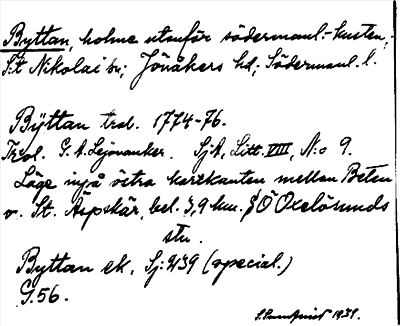 Byttan, holme utanför södermanl.-kusten,
S:t Nikolai sn; Jönåkers hd; Södermanl. l.
Byttan trol. 1774-76.
Trol. G. A. Lejonanker. Sjk, Litt. VIII, N:o 9.
Läge invid östra kartkanten mellan Beten
o. St. Aspskär, bel. 3,9 km. Ö Oxelösunds
stn.
Byttan ek, Sj: 239 (special.)
G. 56.
1939.